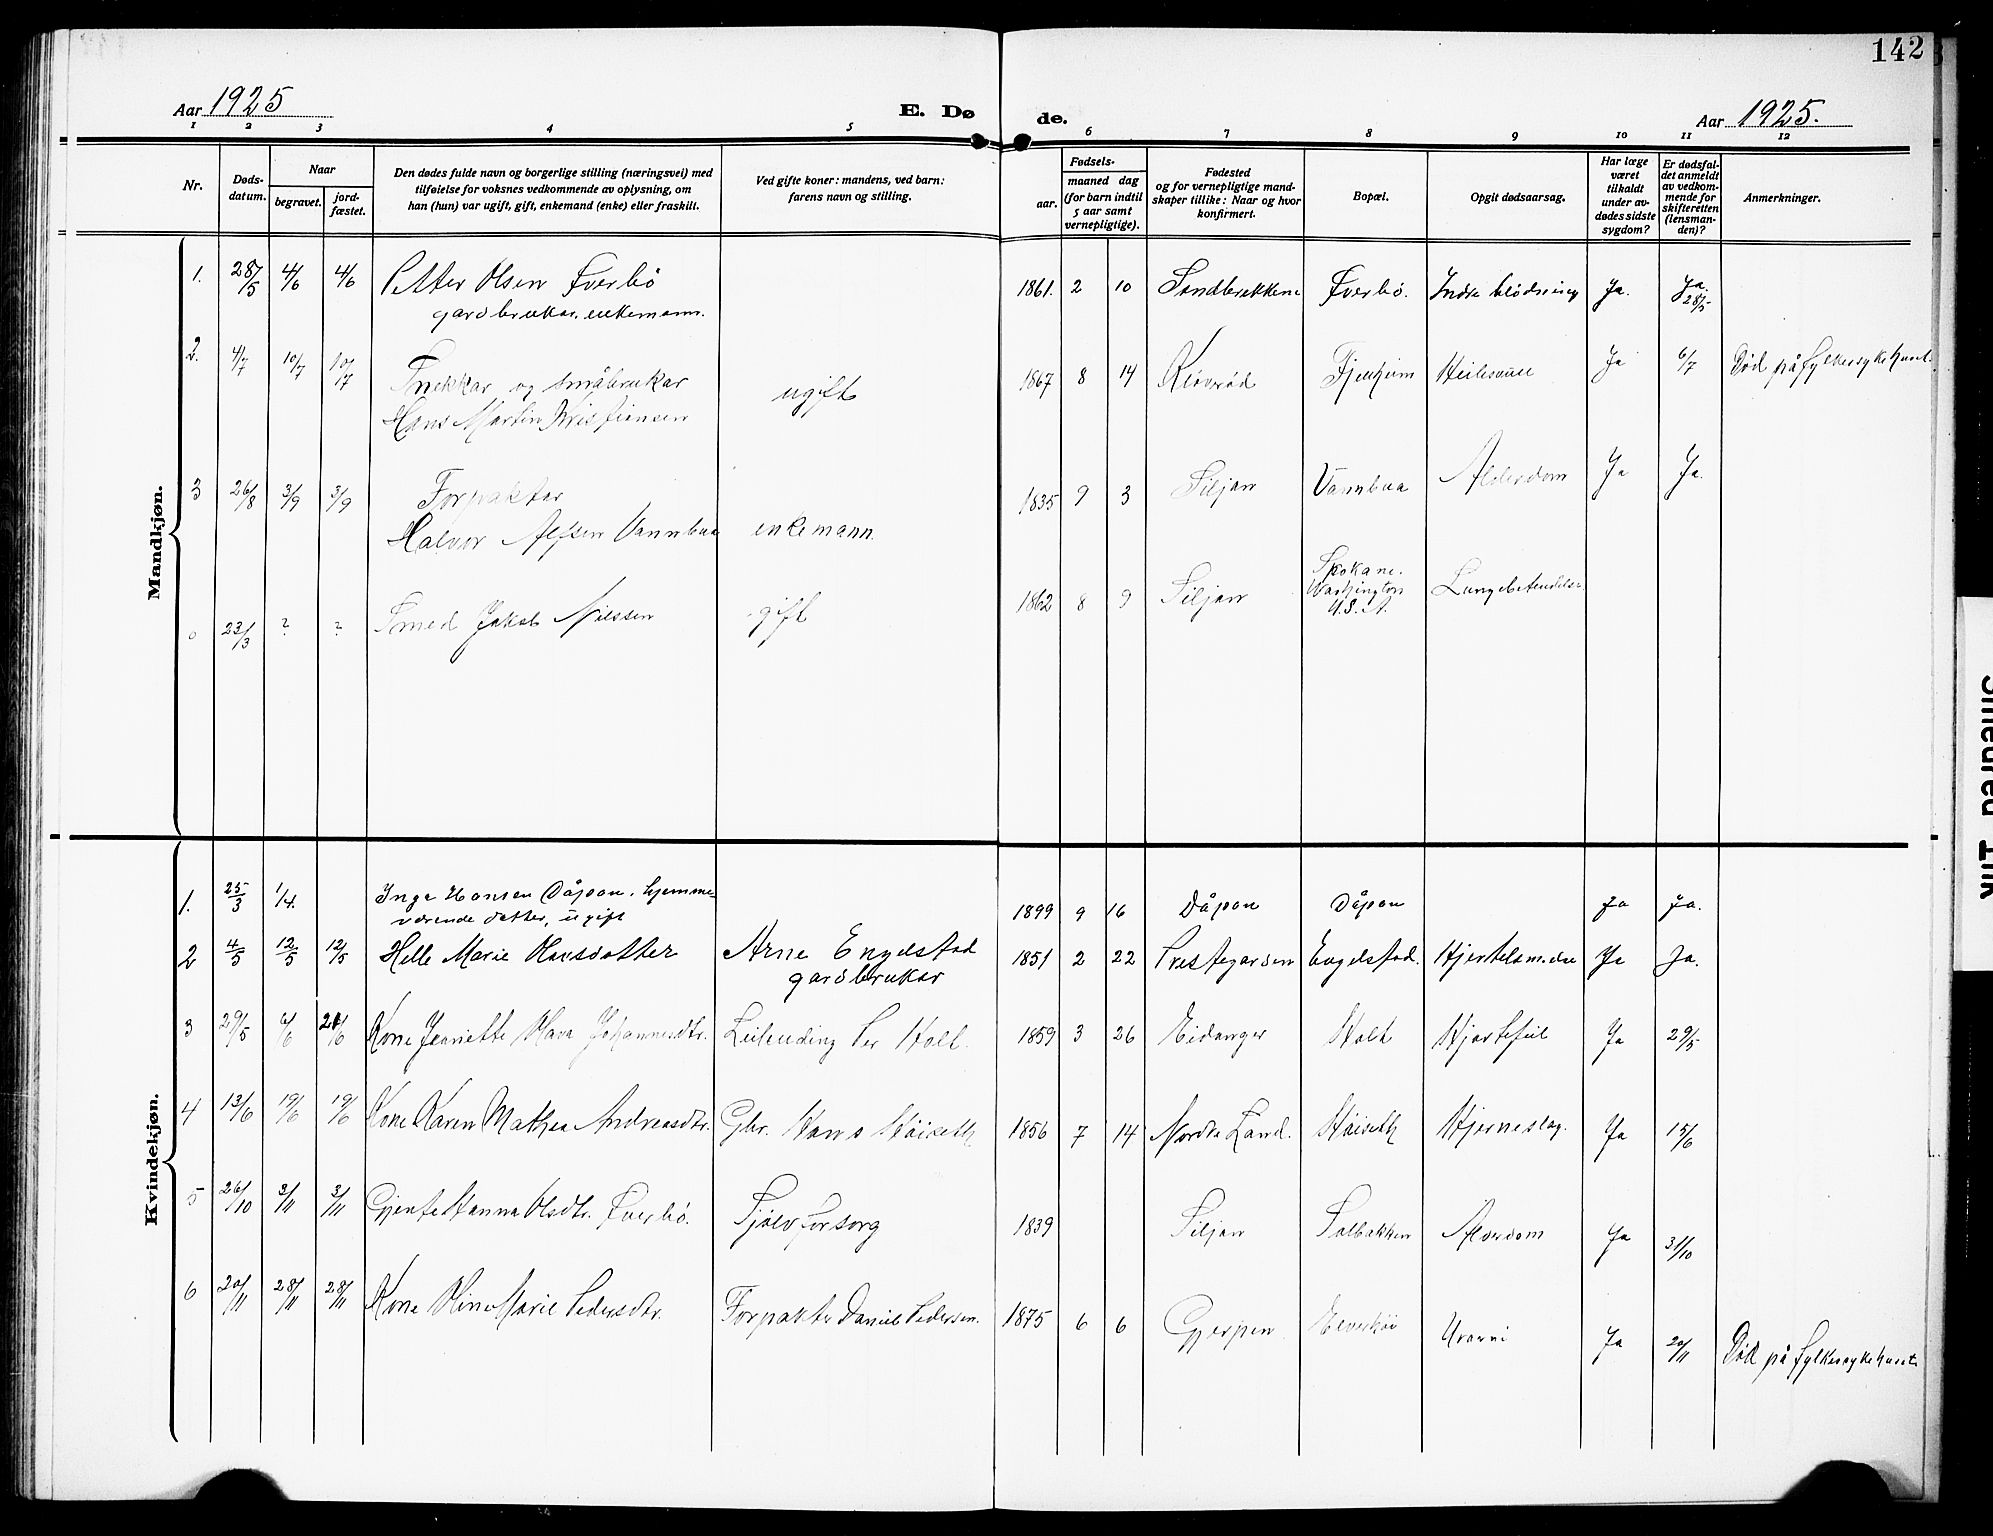 142
Aar 1925
E. Døde.
Aar 1925.
1 2 3 4 5 6 7 8 9 10 11 12
Nr.
Døds-
datum.
Naar
begravet.
jord-
fæstet.
Den dødes fulde navn og borgerlige stilling (næringsvei) med
tilføielse for voksnes vedkommende av oplysning, om
han (hun) var ugift, gift, enkemand (enke) eller fraskilt.
Ved gifte koner: mandens, ved barn:
farens navn og stilling.
Fødsels-
aar.
maaned dag
(for barn indtil
5 aar samt
vernepligtige).
Fødested
og for vernepligtige mand-
skaper tillike: Naar og hvor
konfirmert.
Bopæl.
Opgit dødsaarsag.
Har læge
været
tilkaldt
under av-
dødes sidste
sygdom?
Er dødsfal-
det anmeldt
av vedkom-
mende for
skifteretten
(lensman-
den)?
Anmerkninger.
Mandkjøn.
1. 28/5 4/6 4/6 Petter Olsen Tverbö 1861. 2 10 Sandbrekkene Tverbö. Indre blödning Ja. Ja.
gardbrukar. enkemann. 28/5
2. 4/7 10/7 10/7 Snekkar og småbrukar ugift 1867 8 14 Klöveröd Fjeuheim Ja 6/7 Död på fylkessykehuset
Hans Martin Kristiansen
3 26/8 3/9 3/9 Forpaktar 1835 9 3 Siljan Vannbua Alderdom Ja Ja.
Halvor Alfsen Vannbua enkemann.
0 23/3 ? ? Smed Jakob Nilssen gift 1862 8 9 Siljan Spokane. Lungebetendelse
Washington
U.S.A.
Kvindekjøn.
1. 25/3 1/4. Inga Hansen Dåpan. hjemme- 1899 9 16 Dåpan Dåpan Ja Ja.
værende datter, ugift
2 4/5 12/5 12/5 Helle Marie Olavsdatter Arne Engelstad 1851 2 22 Prestegarden Engelstad. Ja Ja.
gardbrukar
3 29/5 6/6 Kone Jeanette Olava Johannesdtr. Leilending Per Holt. 1859 3 26 Eidanger Holt Hjertefeil Ja 29/5
4 13/6 19/6 19/6 Kone Karen Mathea Andreasdtr. Gbr. Hans Höiseth 1856 7 14 Nordre Land. Höiseth Hjerneslag. Ja 15/6
5 26/10 3/11 3/11 Gjenta Hanna Olsdtr. Tverbö. Sjölvforsorg 1839 Siljan Solbakken Alderdom Ja 31/10
6 20/11 28/11 28/11 Kone Oline Marie Pedersdtr. Forpakter Daniel Pedersen. 1875 6 6 Gjerpen Uræmi Ja 20/11 Död på fylkessykehuset